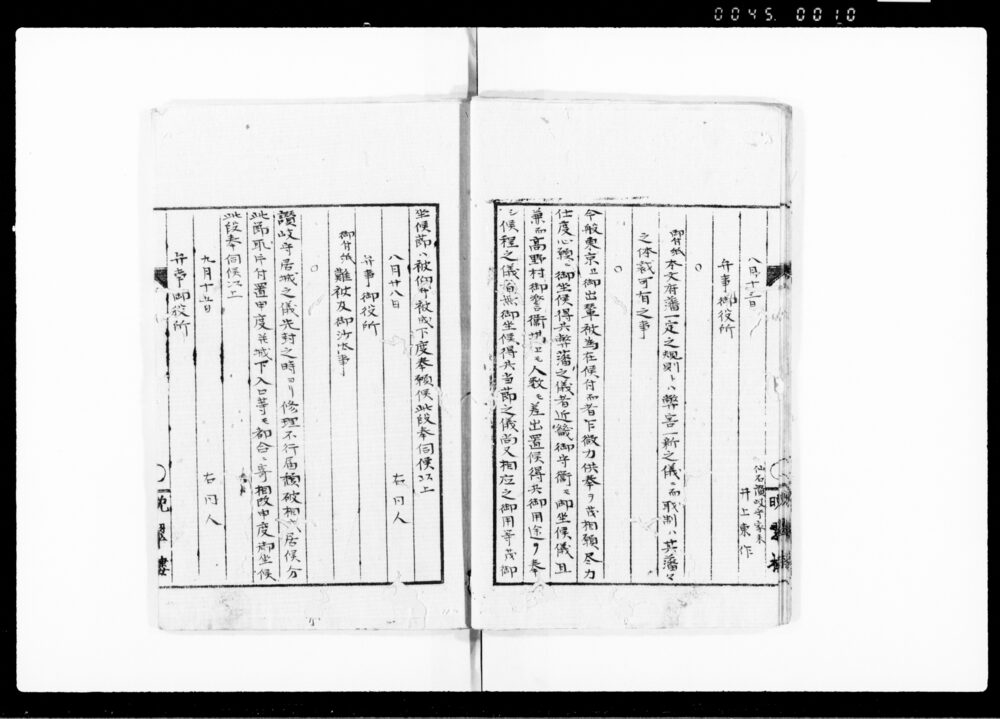 0045.0010
八月十三日
仙石讃岐守家来
井上東作
弁事御役所
○
御付紙 本文府藩一定之規則ハ弊害一新之儀ニ而職制ハ其藩々
之体裁可有之事
○
今般東京ヱ御出輦被為在候付而者下微力供奉ヲ茂相願尽力
仕度心願ニ御坐候得共弊藩之儀者近畿御守衛ニ御坐候儀且
兼而高野村御警衛場ヱモ人数モ差出置候得共御用途ヲ奉
シ候程之儀ニ而無御坐候得共当節之儀尚又相応之御用等茂御
坐候節ハ被仰付被成下度奉願候此段奉伺候以上
八月廿八日
右同人
弁事御役所
御付紙 難被及御沙汰事
○
讃岐守居城之儀先封之時ヨリ修理不行届頽破相成居候分
此節取片付置申度并城下入口等モ都合ニ寄相改申度御坐候
此段奉伺候以上
九月十五日
右同人
弁事御役所